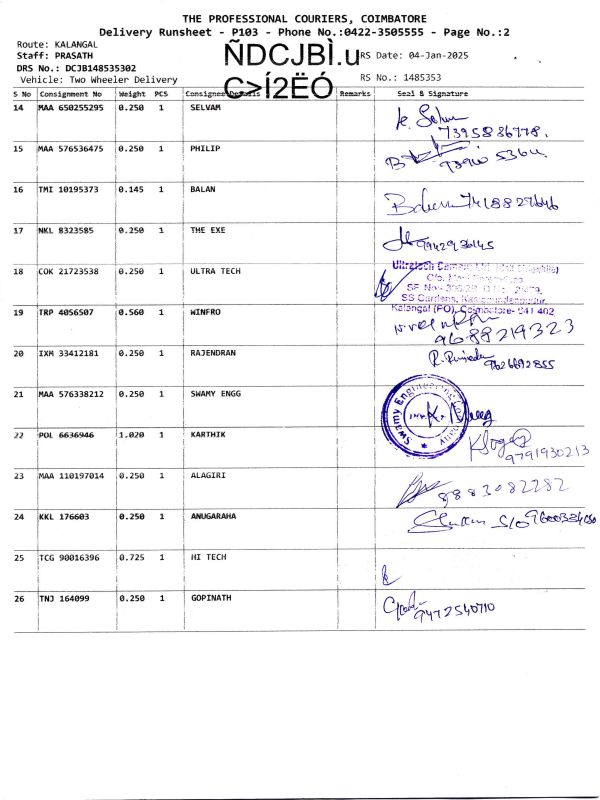 THE PROFESSIONAL COURIERS, COIMBATORE
Delivery Runsheet - P103 - Phone No.:0422-3505555 - Page No.:2
Route: KALANGAL
Staff: PRASATH
DRS No.: DCJB148535302
Vehicle: Two Wheeler Delivery
ÑDCJBÌ.u
C>Í2ËÓ
RS Date: 04-Jan-2025
RS No.: 1485353
S No Consignment No Weight PCS Consignee Details Remarks Seal & Signature
14 MAA 650255295 0.250 1 SELVAM
7395886778.
15 MAA 576536475 0.250 1 PHILIP
16 TMI 10195373 0.145 1 BALAN
17 NKL 8323585 0.250 1 THE EXE
9942936145
18 COK 21723538 0.250 1 ULTRA TECH
Kalangal (PO), Coimbatore- 641 402
19 TRP 4056507 0.560 1 WINFRO
9688219323
20 IXM 33412181 0.250 1 RAJENDRAN
9626692855
21 MAA 576338212 0.250 1 SWAMY ENGG
Swamy Engineering Company
22 POL 6636946 1.020 1 KARTHIK
9791930213
23 MAA 110197014 0.250 1 ALAGIRI
8883082282
24 KKL 176603 0.250 1 ANUGARAHA
25 TCG 90016396 0.725 1 HI TECH
26 TNJ 164099 0.250 1 GOPINATH
9472540710